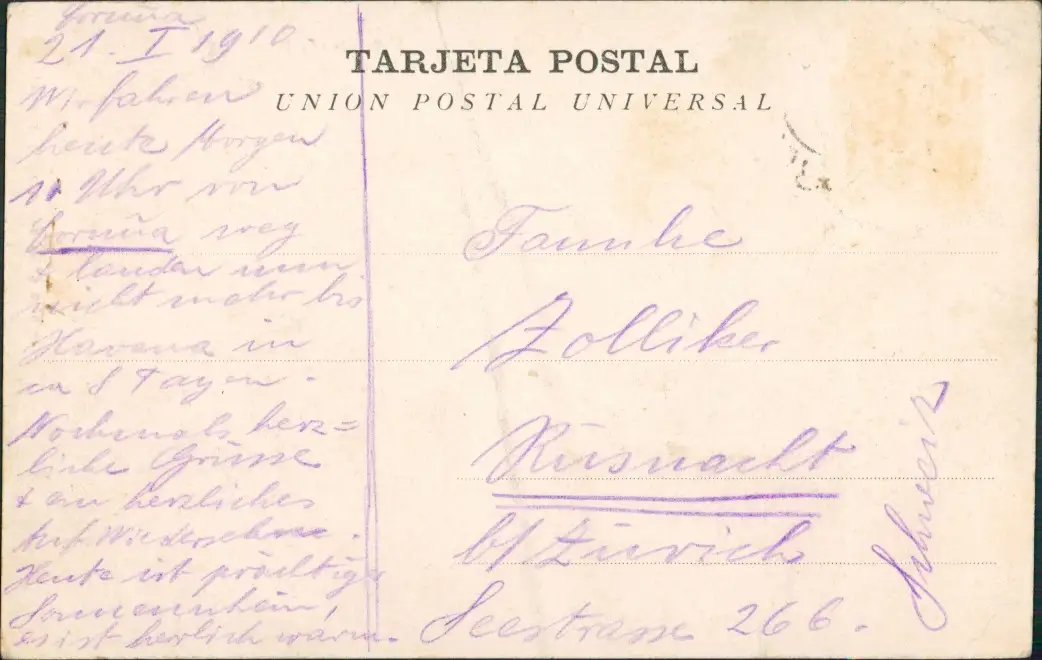 Coruña
21. I 1910.
Wir fahren
heute Morgen
11 Uhr von
Coruña weg
& landen nun
nicht mehr bis
Havena in
ca 8 Tagen.
Nochmals herz=
liche Grüsse
& ein herzliches
Auf Wiedersehen.
Heute ist prächtiger
Sonnenschein,
es ist herlich warm.
TARJETA POSTAL
UNION POSTAL UNIVERSAL
Familie
Zolliker
Küsnacht
b/ Zürich
Seestrasse 266.
Schweiz